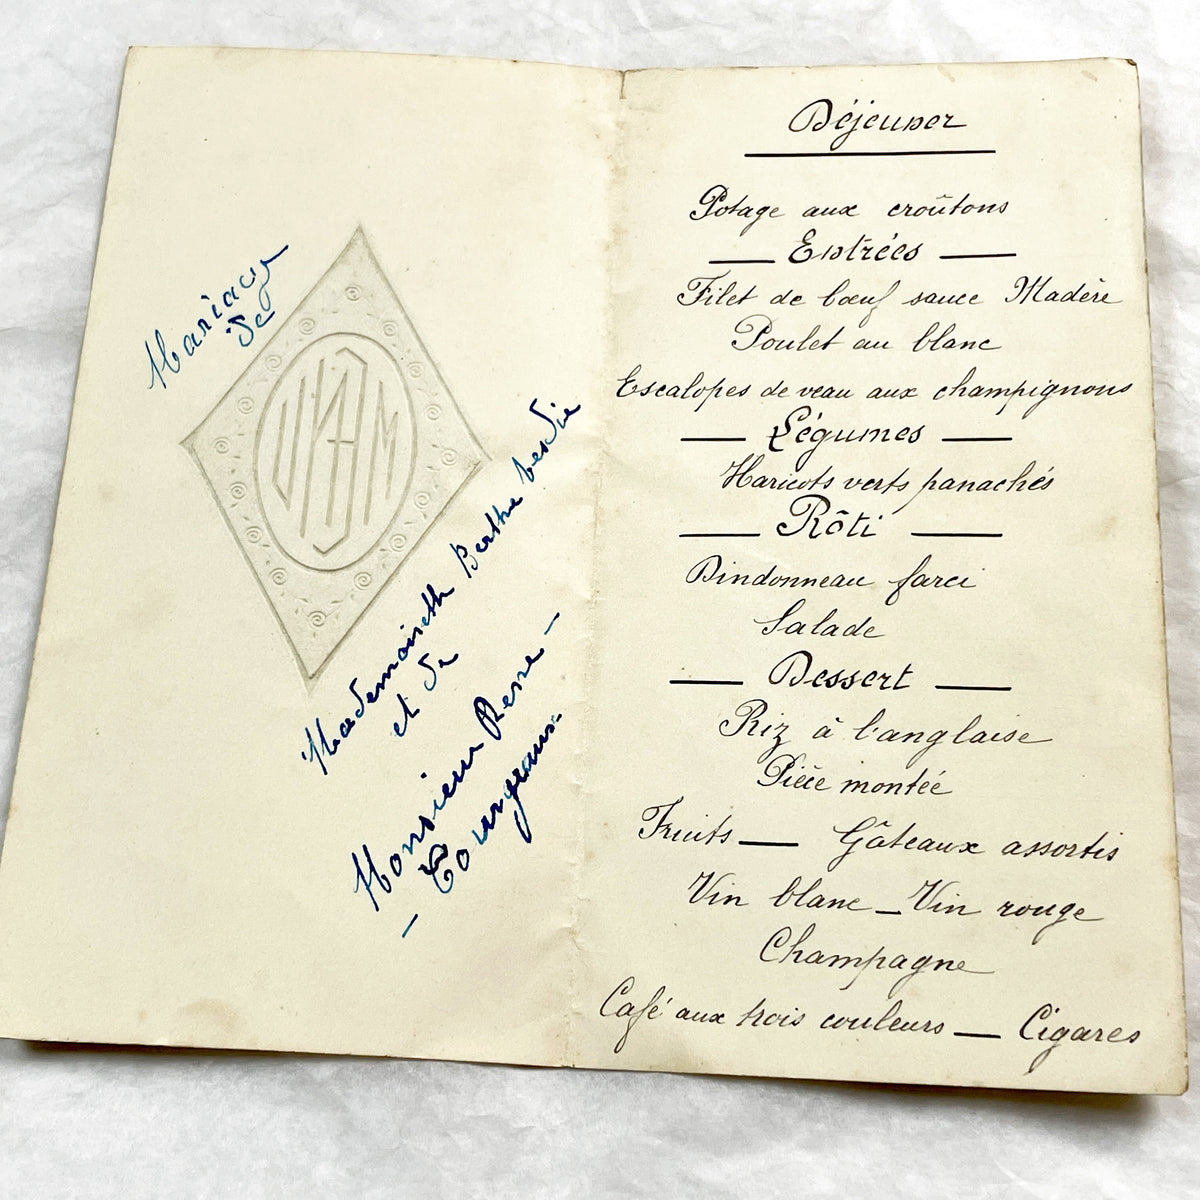 Mariage
de
Mademoiselle Berthe
et de
Monsieur René –
– Tourgeaux
Déjeuner
Potage aux croûtons
— Entrées —
Filet de bœuf sauce Madère
Poulet au blanc
Escalopes de veau aux champignons
— Légumes —
Haricots verts panachés
— Rôti —
Dindonneau farci
Salade
— Dessert —
Riz à l'anglaise
Pièce montée
Fruits — Gâteaux assortis
Vin blanc – Vin rouge
Champagne
Café aux trois couleurs — Cigares